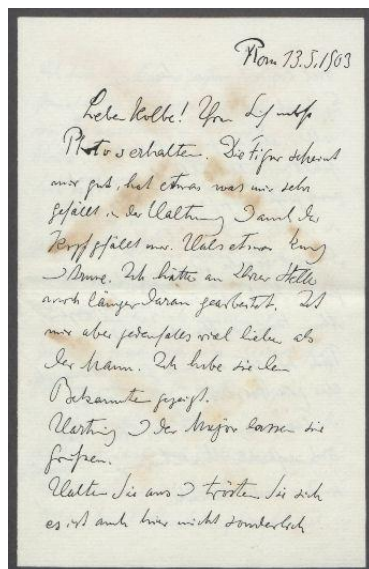 Rom 13.5.1903
Lieber Kolbe! Ihren Brief nebst
Photos erhalten. Die Figur scheint
mir gut, hat etwas was mir sehr
gefällt in der Haltung & auch der
Kopf gefällt mir. Hals etwas kurz
& Arme. Ich hätte an Ihrer Stelle
noch länger daran gearbeitet. Ist
mir aber jedenfalls viel lieber als
der Mann. Ich habe sie den
Bekannten gezeigt.
Hartwig & der Major lassen sie
grüßen.
Halten Sie aus & trösten Sie sich
es ist auch hier nicht sonderlich